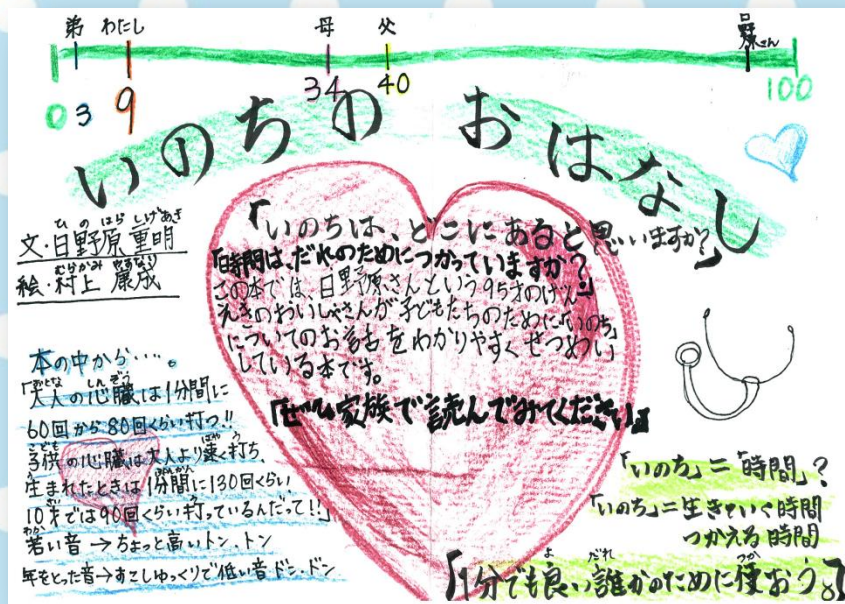 弟 わたし 母 父 日野原さん
0 3 9 34 40 100
いのちの おはなし
ひのはらしげあき
文・日野原 重明
むらかみ やすなり
絵・村上 康成
「いのちは、どこにあると思いますか?」
「時間は、だれのためにつかっていますか?」
この本では、日野原さんという95才のげん
えきのおいしゃさんが子どもたちのために「いのち」
についてのお話をわかりやすくせつめい
している本です。
「ぜひ家族で読んでみてください」
本の中から・・・・。
おとな しんぞう
「大人の心臓は1分間に
60回から80回くらい打つ!!
こども はや
子供の心臓は大人より速く打ち、
生まれたときは1分間に130回くらい
10才では90回くらい打っているんだって!!」
わか
若い音→ちょっと高いトン、トン
年をとった音→すこしゆっくりで低い音ドン、ドン
「いのち」=「時間」?
「いのち」=生きていく時間
つかえる時間
よ だれ つか
「1分でも良い誰かのために使おう。」